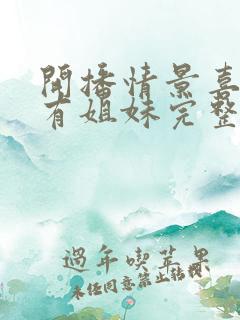 開播情景喜
有姐妹完整
過年喫苹果
未任同意禁止轉載